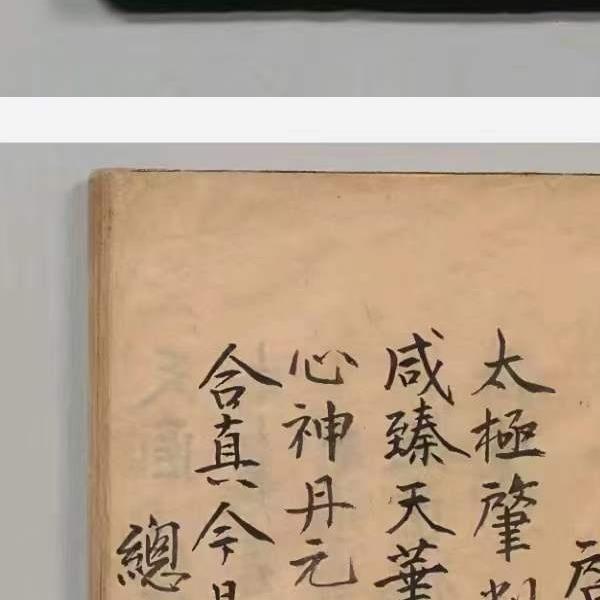 太極肇判
咸臻天華
心神丹元
合真今
總